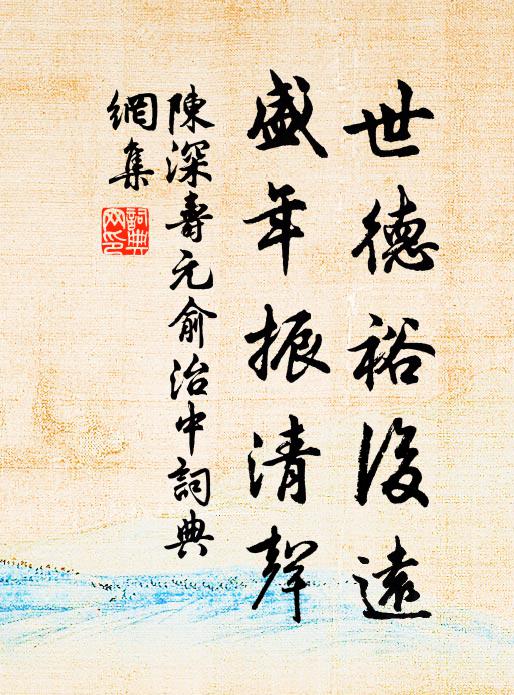 世德裕後遠
盛年振清聲
陳深壽元俞治中詞典
網集
詞典
网印